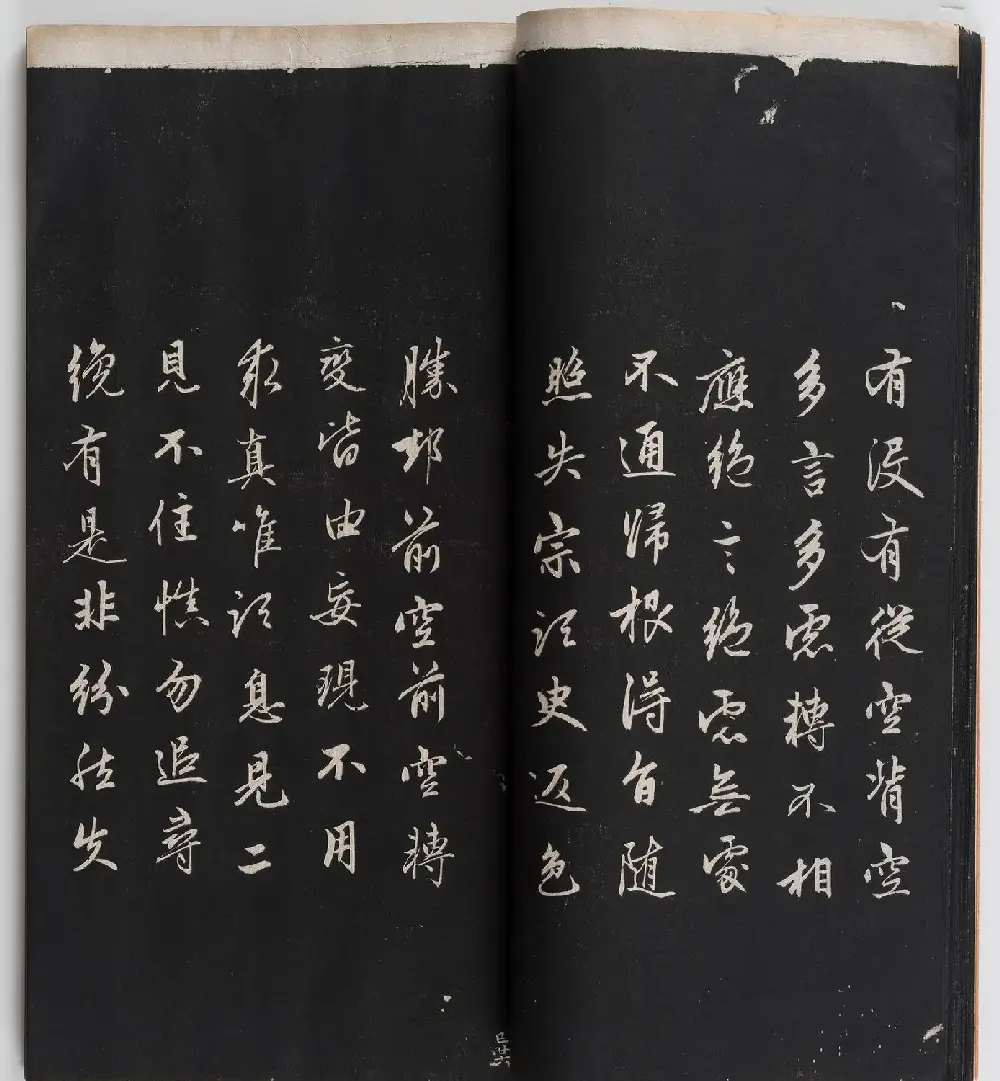 有没有從空背空
多言多慮轉不相
應絶言絶慮無處
不通歸根得旨隨
照失宗須臾返色
勝却前空前空轉
變皆由妄現不用
求真唯須息見二
見不住慎勿追尋
纔有是非紛然失